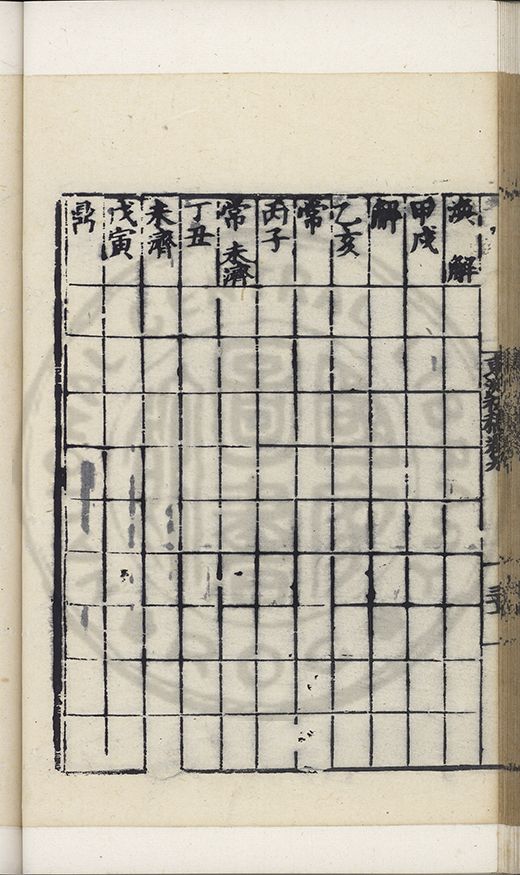 渙 解
甲戌
解
乙亥
常
丙子
常 未濟
丁丑
未濟
戊寅
鼎